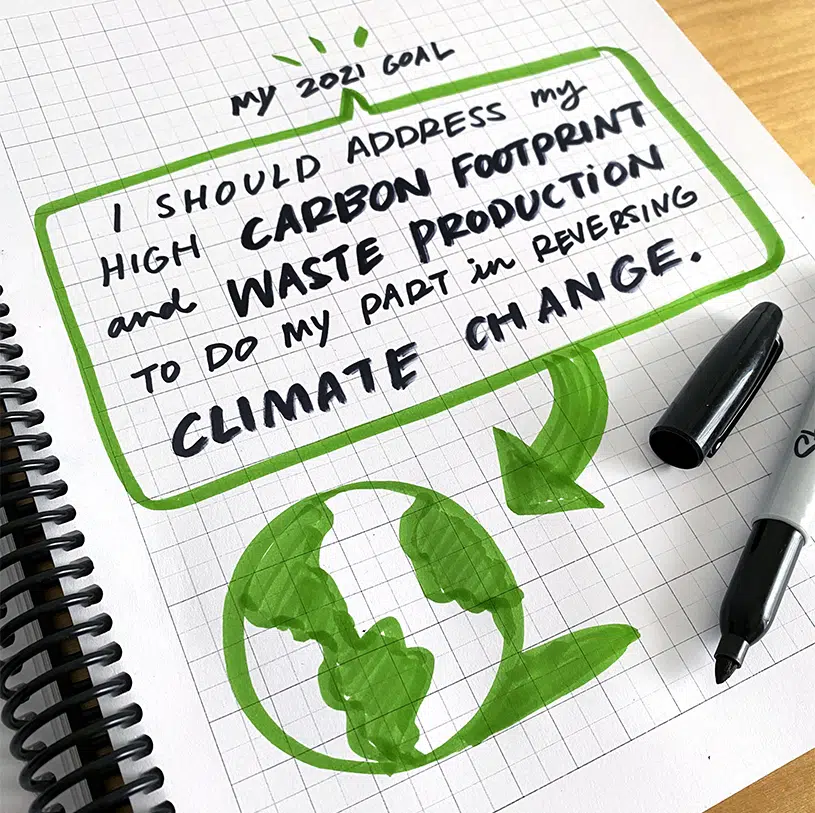 MY 2021 GOAL
I SHOULD ADDRESS my
HIGH CARBON FOOTPRINT
and WASTE PRODUCTION
TO DO MY PART in REVERSING
CLIMATE CHANGE.